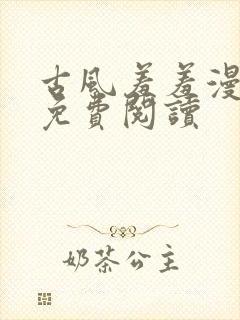 古風羞羞漫
免費閱讀
奶茶公主